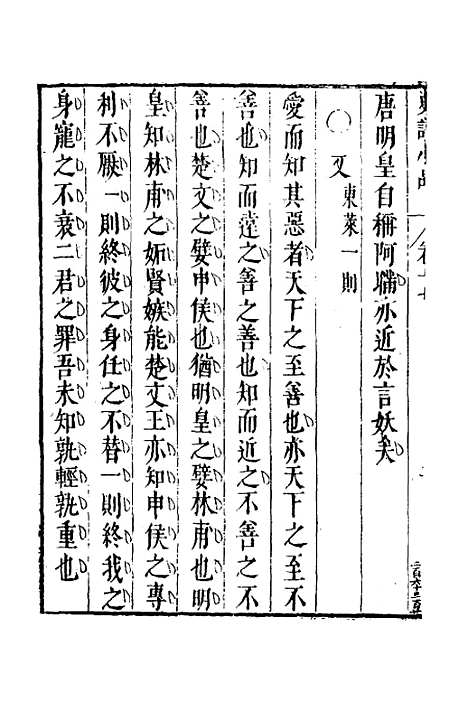 唐明皇自稱阿瞞亦近於言妖矣
○又東萊一則
愛而知其惡者天下之至善也亦天下之至不
善也知而遠之善之善也知而近之不善之不
善也楚文之嬖申侯也猶明皇之嬖林甫也明
皇知林甫之妬賢嫉能楚文王亦知申侯之專
利不厭一則終彼之身任之不替一則終我之
身寵之不衰二君之罪吾未知孰輕孰重也